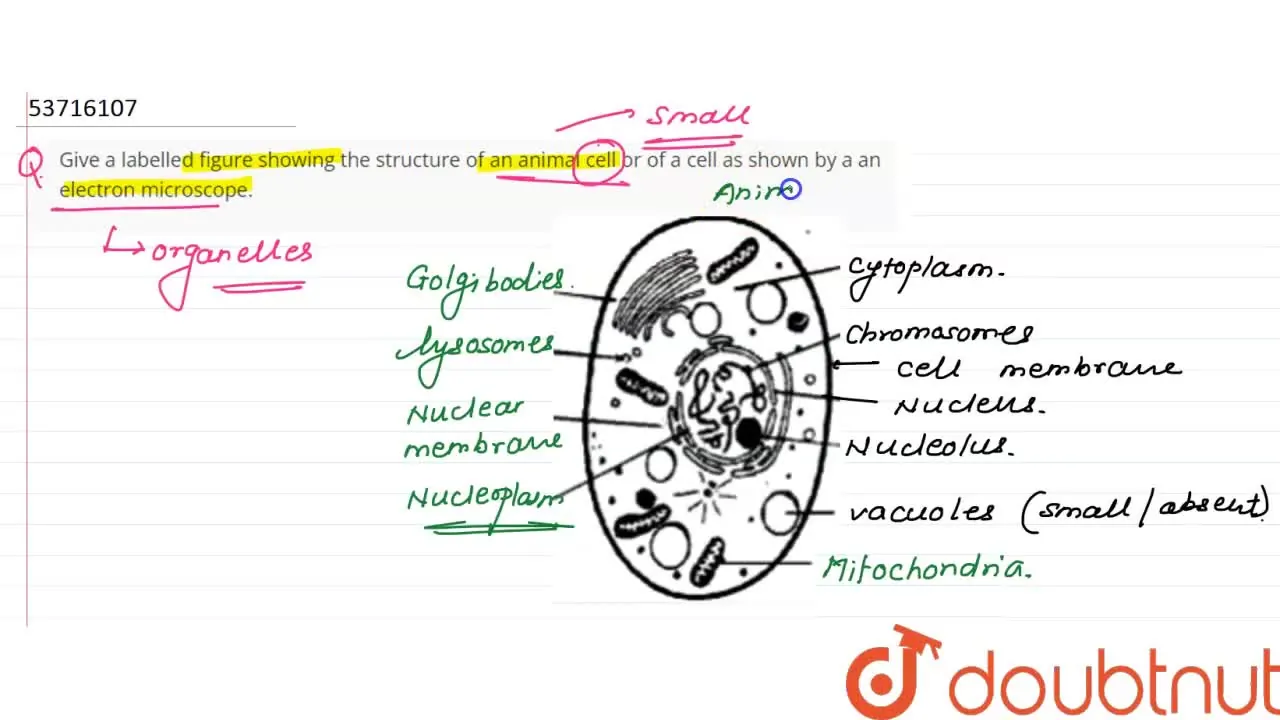 53716107
small
Q. Give a labelled figure showing the structure of an animal cell or of a cell as shown by a an
electron microscope.
Anim
organelles
Golgi bodies.
Cytoplasm.
Lysosomes
Chromasomes
cell membrane
Nuclear
membrane
Nucleus.
Nucleolus.
Nucleoplasm
vacuoles (small/absent).
Mitochondria.
doubtnut